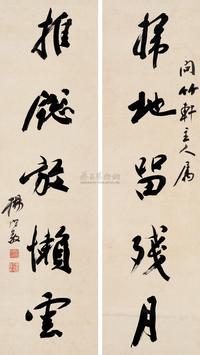 問竹軒主人屬
掃地留殘月
推窗放懶雲
楊守敬